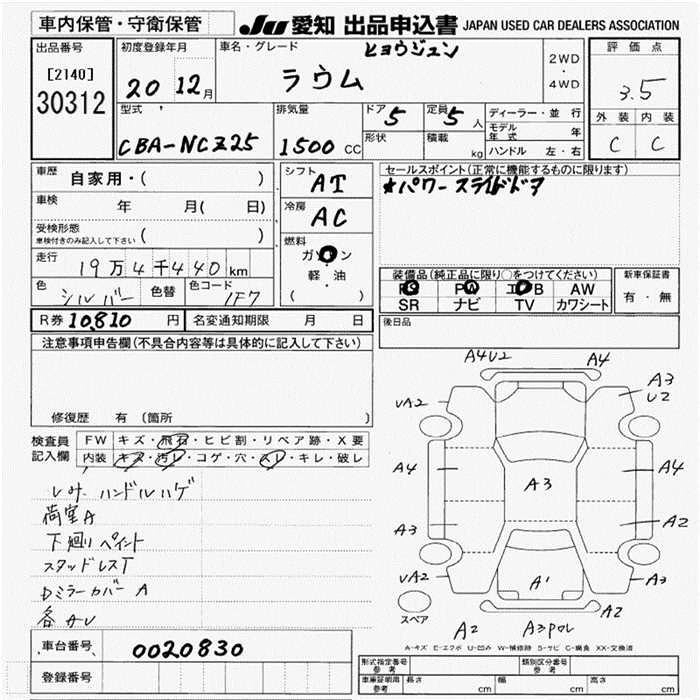 車内保管・守衛保管
JU 愛知 出品申込書 JAPAN USED CAR DEALERS ASSOCIATION
出品番号
[2140]
30312
初度登録年月
20 12月
車名・グレード
ヒョウジュン
ラウム
2WD
・
4WD
評価点
3.5
外装 内装
C C
型式
CBA-NCZ25
排気量
1500 CC
ドア 5
定員 5 人
形状
積載 kg
ディーラー・並行
モデル年式 年
ハンドル 左・右
車歴 自家用・( )
車検 年 月( 日)
受検形態
車検付きのみ記入して下さい ( )
走行 19万4千440km
色 シルバー 色替 色コード 1F7
シフト AT
冷房 AC
燃料
ガソリン
軽・油
( )
セールスポイント(正常に機能するものに限ります)
★パワースライドドア
装備品(純正品に限り○をつけてください)
PS PW エアB AW
SR ナビ TV カワシート
新車保証書
有・無
R券 10,810 円
名変通知期限 月 日
後日品
注意事項申告欄(不具合内容等は具体的に記入して下さい)
修復歴 有 (箇所 )
検査員
記入欄
FW キズ・飛石・ヒビ割・リペア跡・X要
内装 キズ・汚レ・コゲ・穴・スレ・キレ・破レ
レザー ハンドルハゲ
荷室A
下廻りペイント
スタッドレスT
Dミラーカバー A
各AU
A4U2 A4
UA2
A3
U2
A4
A3
A4
A3
A2
UA2
A1
A3
スペア
A2
A3POL
A2
A-キズ E-エクボ U-凹み W-補修跡 S-サビ C-腐食 XX-交換済
車台番号 0020830
登録番号
型式指定番号
参考
類別区分番号
参考
車庫証明用
参考
長さ cm
幅 cm
高さ cm